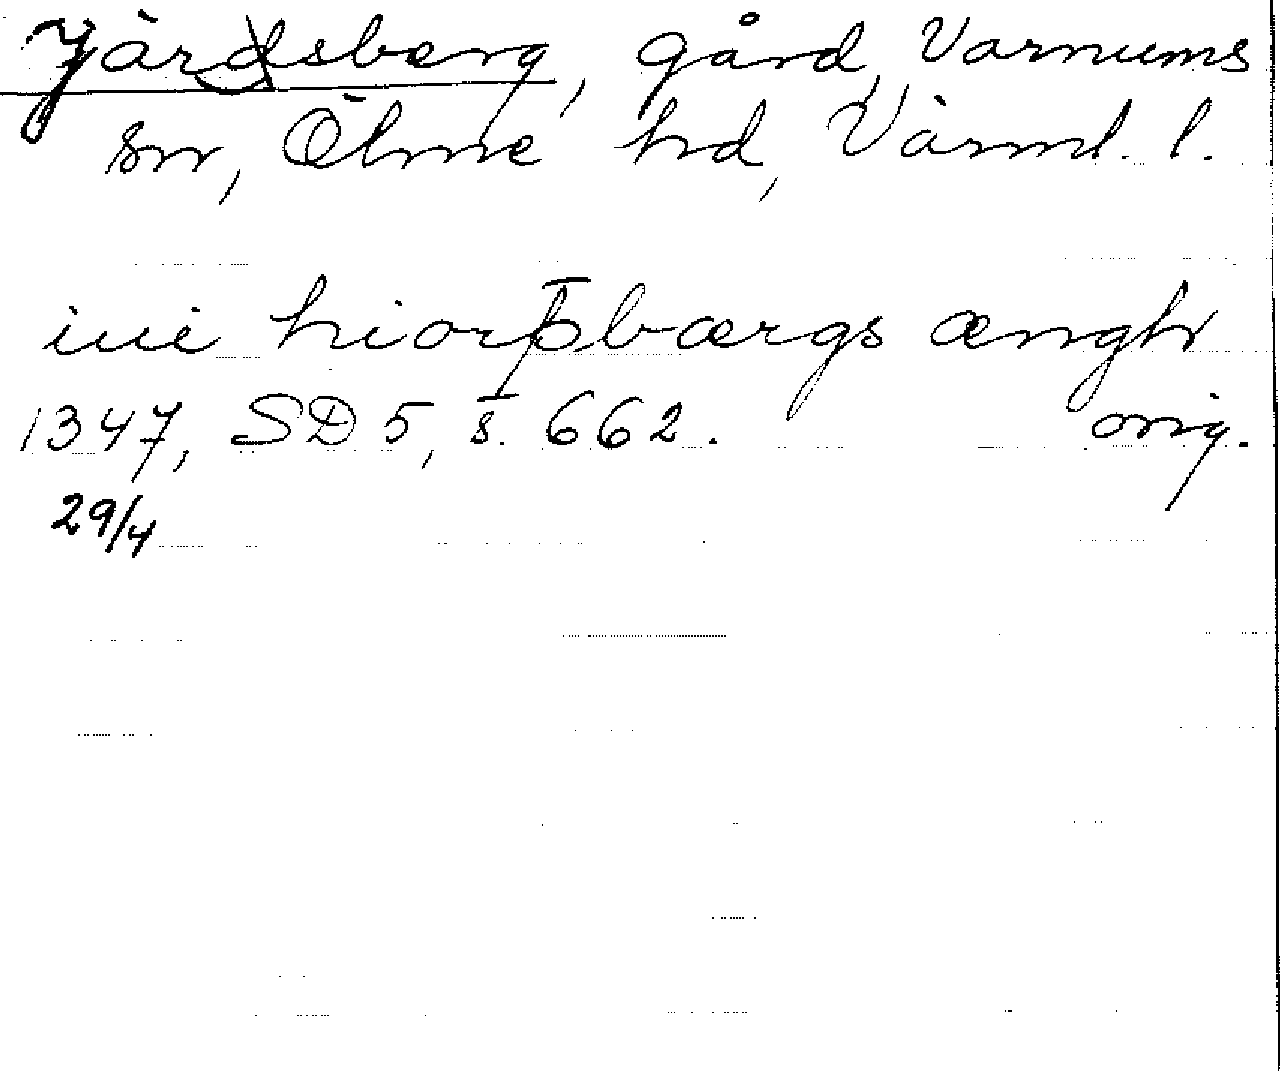 Järdsberg, gård, Varnums
sn, Ölme hd, Värml. l.
iui hiorþbærgs ængh
1347, SD 5, s. 662. orig.
29/4